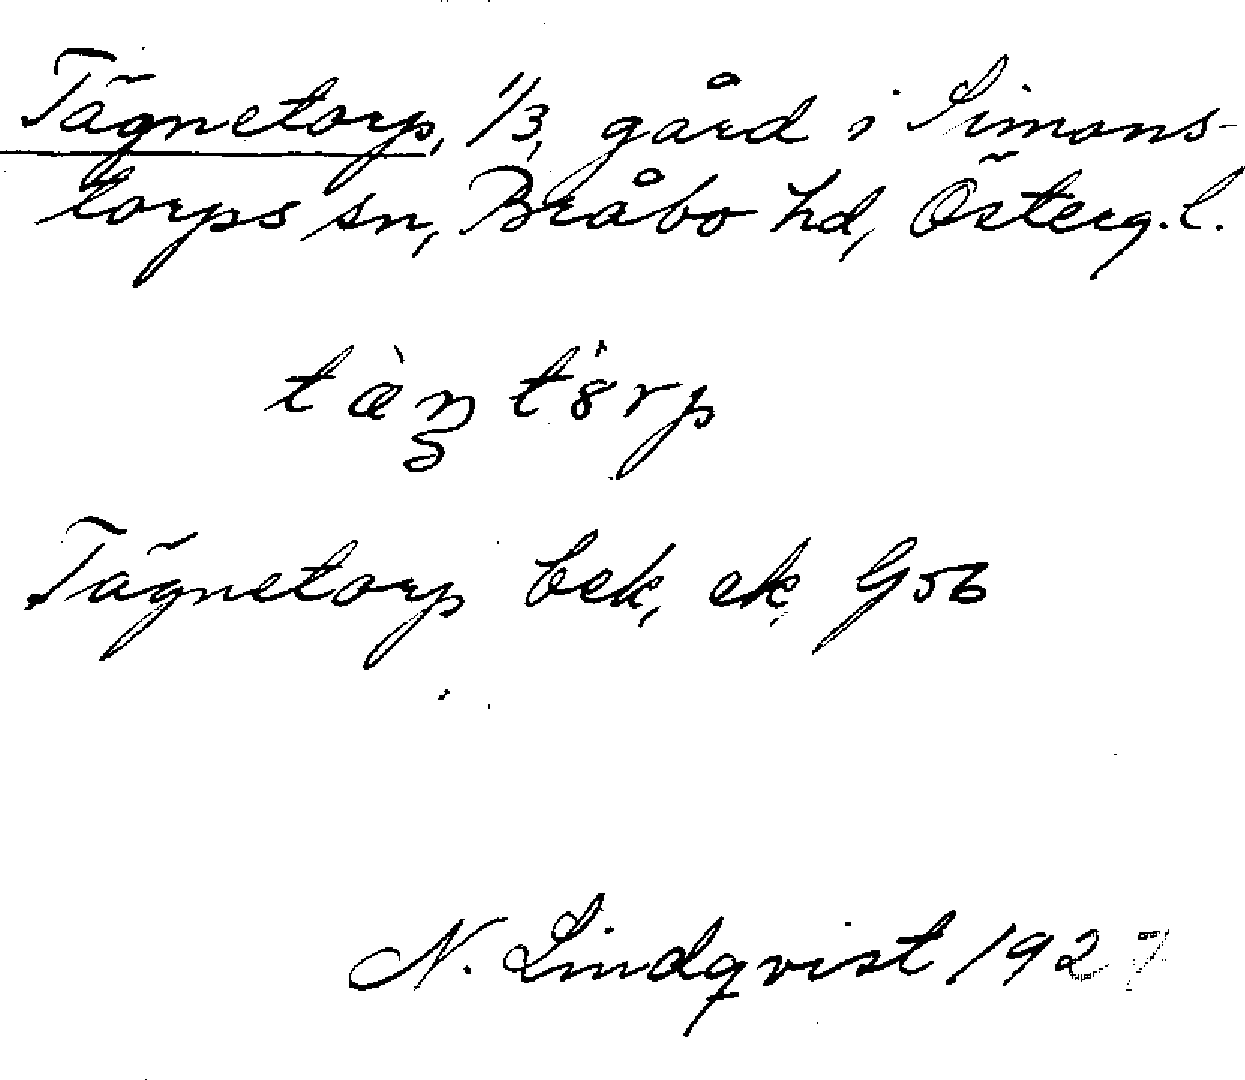 Tägnetorp, 1/3, gård i Simons-
torps sn, Bråbo hd, Österg.l.
Tägnetorp bek, ek, G56
N. Lindqvist 1927